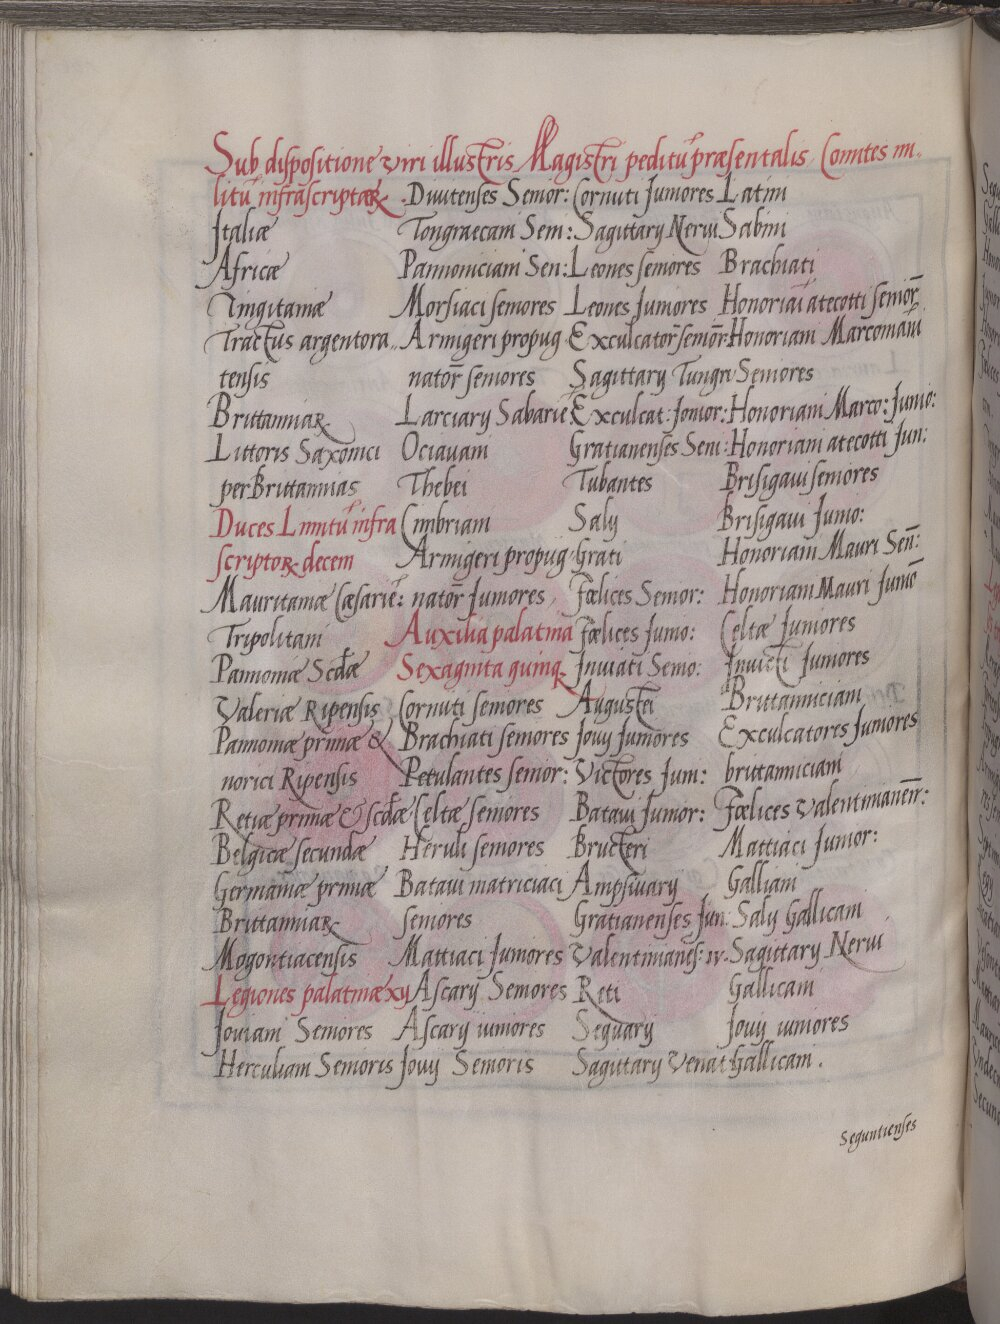 Sub dispositione viri illustris Magistri peditū præsentalis Comites mi.
litū infrascriptaꝝ.
Italiæ
Africæ
Tingitaniæ
Tractus argentora..
tensis
Brittanniaꝝ
Littoris Saxonici
per Brittannias
Duces Limitū infra
scriptoꝝ decem
Mauritaniæ Cæsariē:
Tripolitani
Pannoniæ Scd̄æ
Valeriæ Ripensis
Pannoniæ primæ &
norici Ripensis
Retiæ primæ & scd̄æ
Belgicæ secundæ
Germaniæ primæ
Brittanniaꝝ
Mogontiacensis
Legiones palatinæ xij
Joviani Seniores
Herculiani Senioris
Divitenses Senior:
Tongraecani Seni:
Pannoniciani Sen:
Morsiaci seniores
Armigeri propug
natoř seniores
Larciarij Sabariē
Octavani
Thebei
Cimbriani
Armigeri propug
natoř Juniores
Auxilia palatina
Sexaginta quinqꝫ
Cornuti seniores
Brachiati seniores
Petulantes senior:
Celtæ seniores
Heruli seniores
Batavi matriciaci
seniores
Mattiaci Juniores
Ascarij Seniores
Ascarij iuniores
Jovij Senioris
Cornuti Juniores
Sagittarij Nervi
Leones seniores
Leones Juniores
Exculcatoř senioř:
Sagittarij Tungri
Exculcat: Junior:
Gratianenses Seni:
Tubantes
Salij
Grati
Fœlices Senior:
Fœlices Junio:
Inviati Senio:
Augustei
Jovij Juniores
Victores Jun:
Batavi Junior:
Bructeri
Ampsivarij
Gratianenses Jun:
Valentinianēs: iv.
Reti
Sequarij
Sagittarij Venat
Latini
Sabini
Brachiati
Honoriani atecotti senioř
Honoriani Marcomani
Seniores
Honoriani Marco: Junio:
Honoriani atecotti Jun:
Brisigavi seniores
Brisigavi Junio:
Honoriani Mauri Señ:
Honoriani Mauri Juniō
Celtæ Juniores
Invicti Juniores
Brittanniciani
Exculcatores Juniores
brittanniciani
Fœlices Valentinianeñ:
Mattiaci Junior:
Galliani
Salij Gallicani
Sagittarij Nervii
Gallicani
Jovij iuniores
Gallicani.
Seguntienses